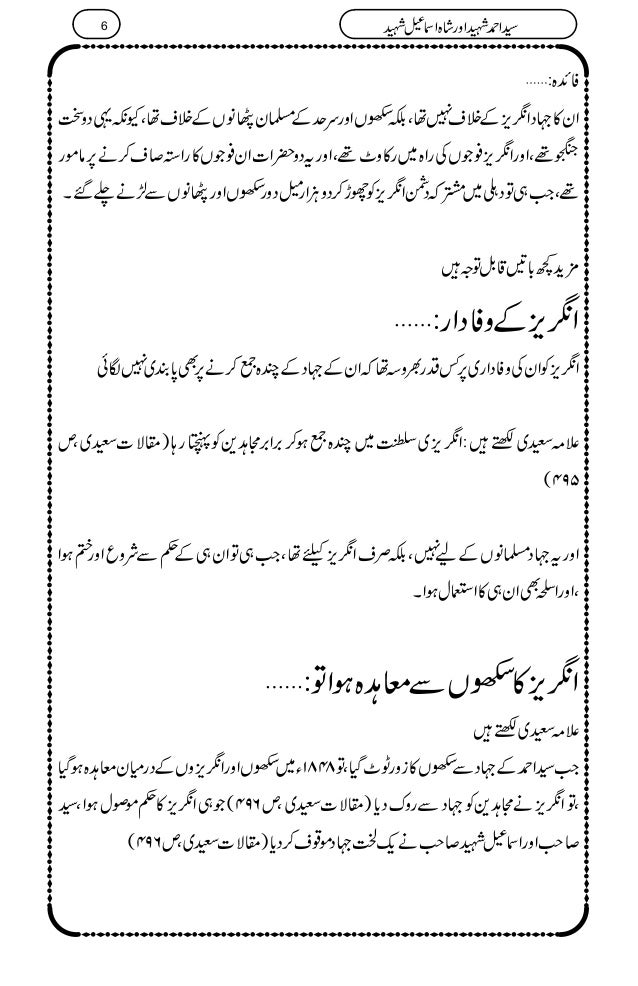 سید احمد شہید اور شاہ اسماعیل شہید
6
فائدہ:......
ان کا جہاد انگریز کے خلاف نہیں تھا، بلکہ سکھوں اور سرحد کے مسلمان پٹھانوں کے خلاف تھا، کیونکہ یہی دو سخت
جنگجو تھے، اور انگریز فوجوں کی راہ میں رکاوٹ تھے، اور یہ دو حضرات ان فوجوں کا راستہ صاف کرنے پر مامور
تھے، جب ہی تو دہلی میں مشترکہ دشمن انگریز کو چھوڑ کر دو ہزار میل دور سکھوں اور پٹھانوں سے لڑنے چلے گئے ۔
مزید کچھ باتیں قابل توجہ ہیں
انگریز کے وفادار:......
انگریز کو ان کی وفاداری پر کس قدر بھروسہ تھا کہ ان کے جہاد کے چندہ جمع کرنے پر بھی پابندی نہیں لگائی
علامہ سعیدی لکھتے ہیں :انگریزی سلطنت میں چندہ جمع ہو کر برابر مجاہدین کو پہنچتا رہا( مقالات سعیدی ،ص
۴۹۵)
اور یہ جہاد مسلمانوں کے لیے نہیں، بلکہ صرف انگریز کیلئے تھا، جب ہی تو ان ہی کے حکم سے شروع اور ختم ہوا
،اور اسلحہ بھی ان ہی کا استعمال ہوا۔
انگریز کا سکھوں سے معاہدہ ہوا تو:......
علامہ سعیدی لکھتے ہیں
جب سید احمد کے جہاد سے سکھوں کا زور ٹوٹ گیا ،تو ۱۸۴۸ء میں سکھوں اور انگریزوں کے درمیان معاہدہ ہو گیا
،تو انگریز نے مجاہدین کو جہاد سے روک دیا ( مقالات سعیدی ،ص ۴۹۶) جوہی انگریز کا حکم موصول ہوا ،سید
صاحب اور اسماعیل شہید صاحب نے یک لخت جہاد موقوف کر دیا (مقالات سعیدی ،ص ۴۹۶)